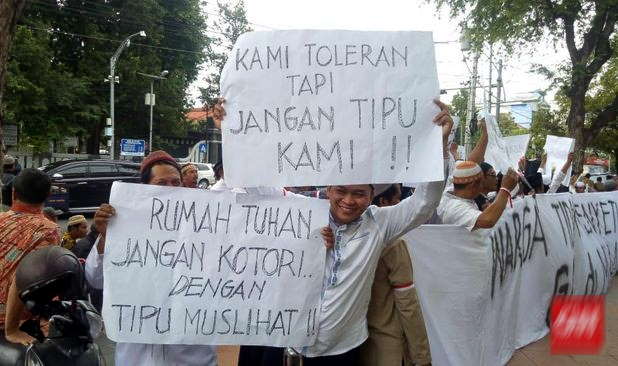 KAMI TOLERAN
TAPI
JANGAN TIPU
KAMI !!
RUMAH TUHAN
JANGAN KOTORI..
DENGAN
TIPU MUSLIHAT !!
WARGA